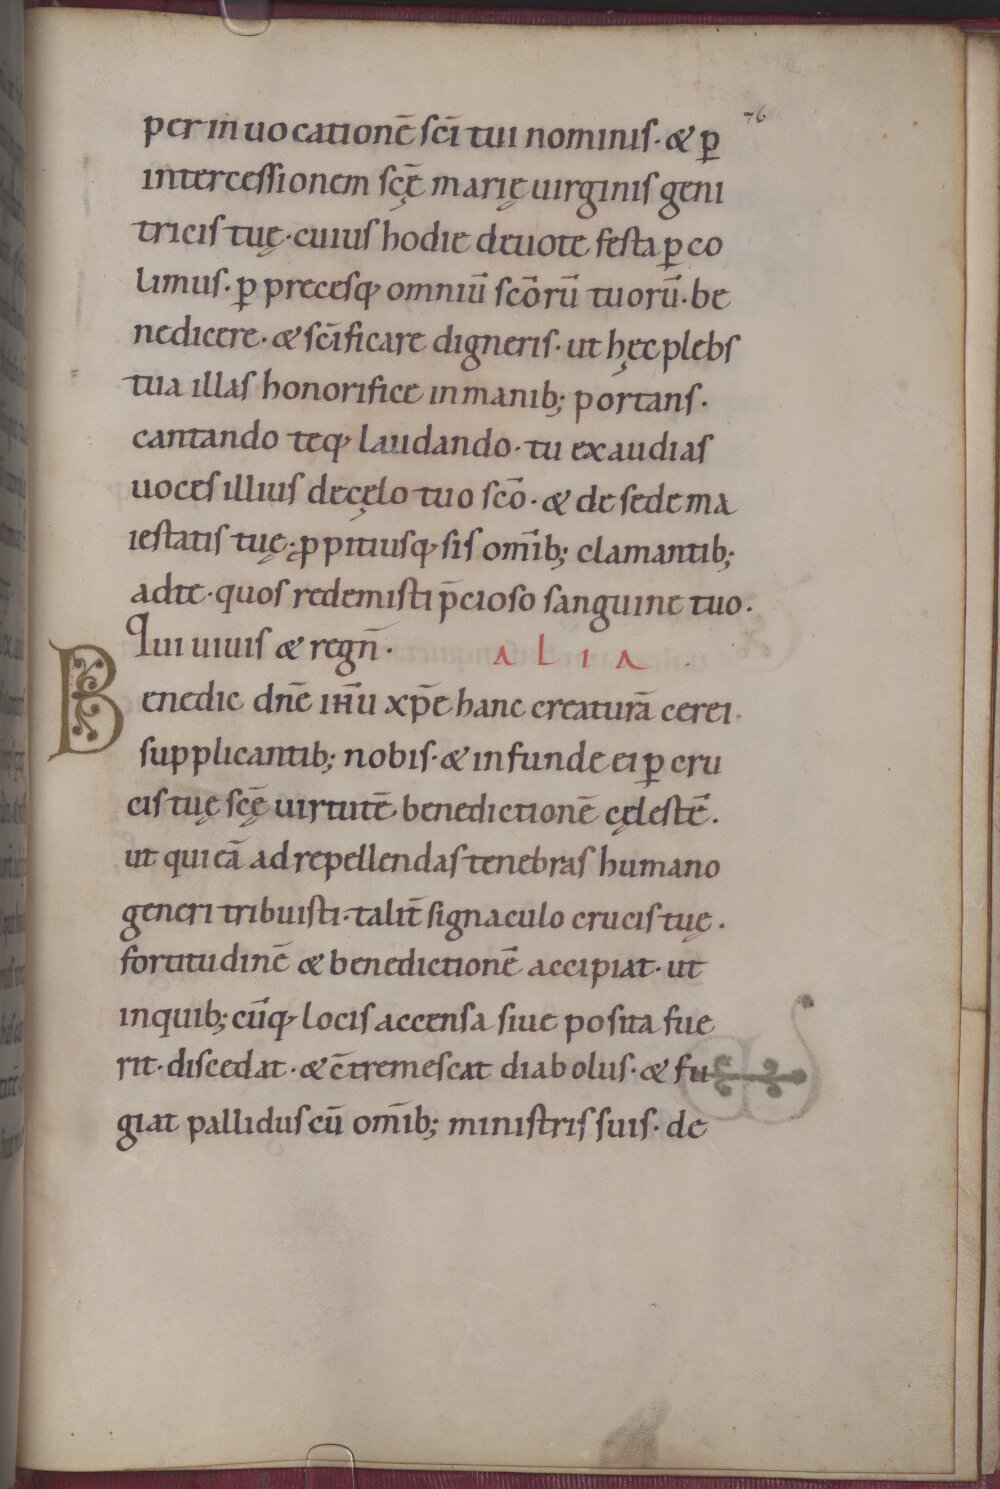 76
per inuocationē sc̄i tui nominis· & ꝑ
intercessionem scę̄ marię uirginis geni
tricis tuę· cuius hodie deuote festa ꝑco
limus· ꝑ precesq; omniū sc̄orū tuorū· be
nedicere· & sc̄ificare digneris· ut hęc plebs
tua illas honorifice in manib; portans·
cantando teq; laudando· tu exaudias
uoces illius de cęlo tuo sc̄o· & de sede ma
iestatis tuę· ꝓpitiusq; sis om̄ib; clamantib;
ad te· quos redemisti p̄cioso sanguine tuo·
Qui uiuis & regn̄· ALIA·
Benedic dn̄e iħu xp̄e hanc creaturā cerei
supplicantib; nobis· & infunde ei ꝑ cru
cis tuę scę̄ uirtutē benedictionē cęlestē·
ut qui eā ad repellendas tenebras humano
generi tribuisti· talit̄ signaculo crucis tuę·
fortitudinē & benedictionē accipiat· ut
in quib; cūq; locis accensa siue posita fue
rit· discedat· & c̄tremescat diabolus· & fu
giat pallidus cū om̄ib; ministris suis· de